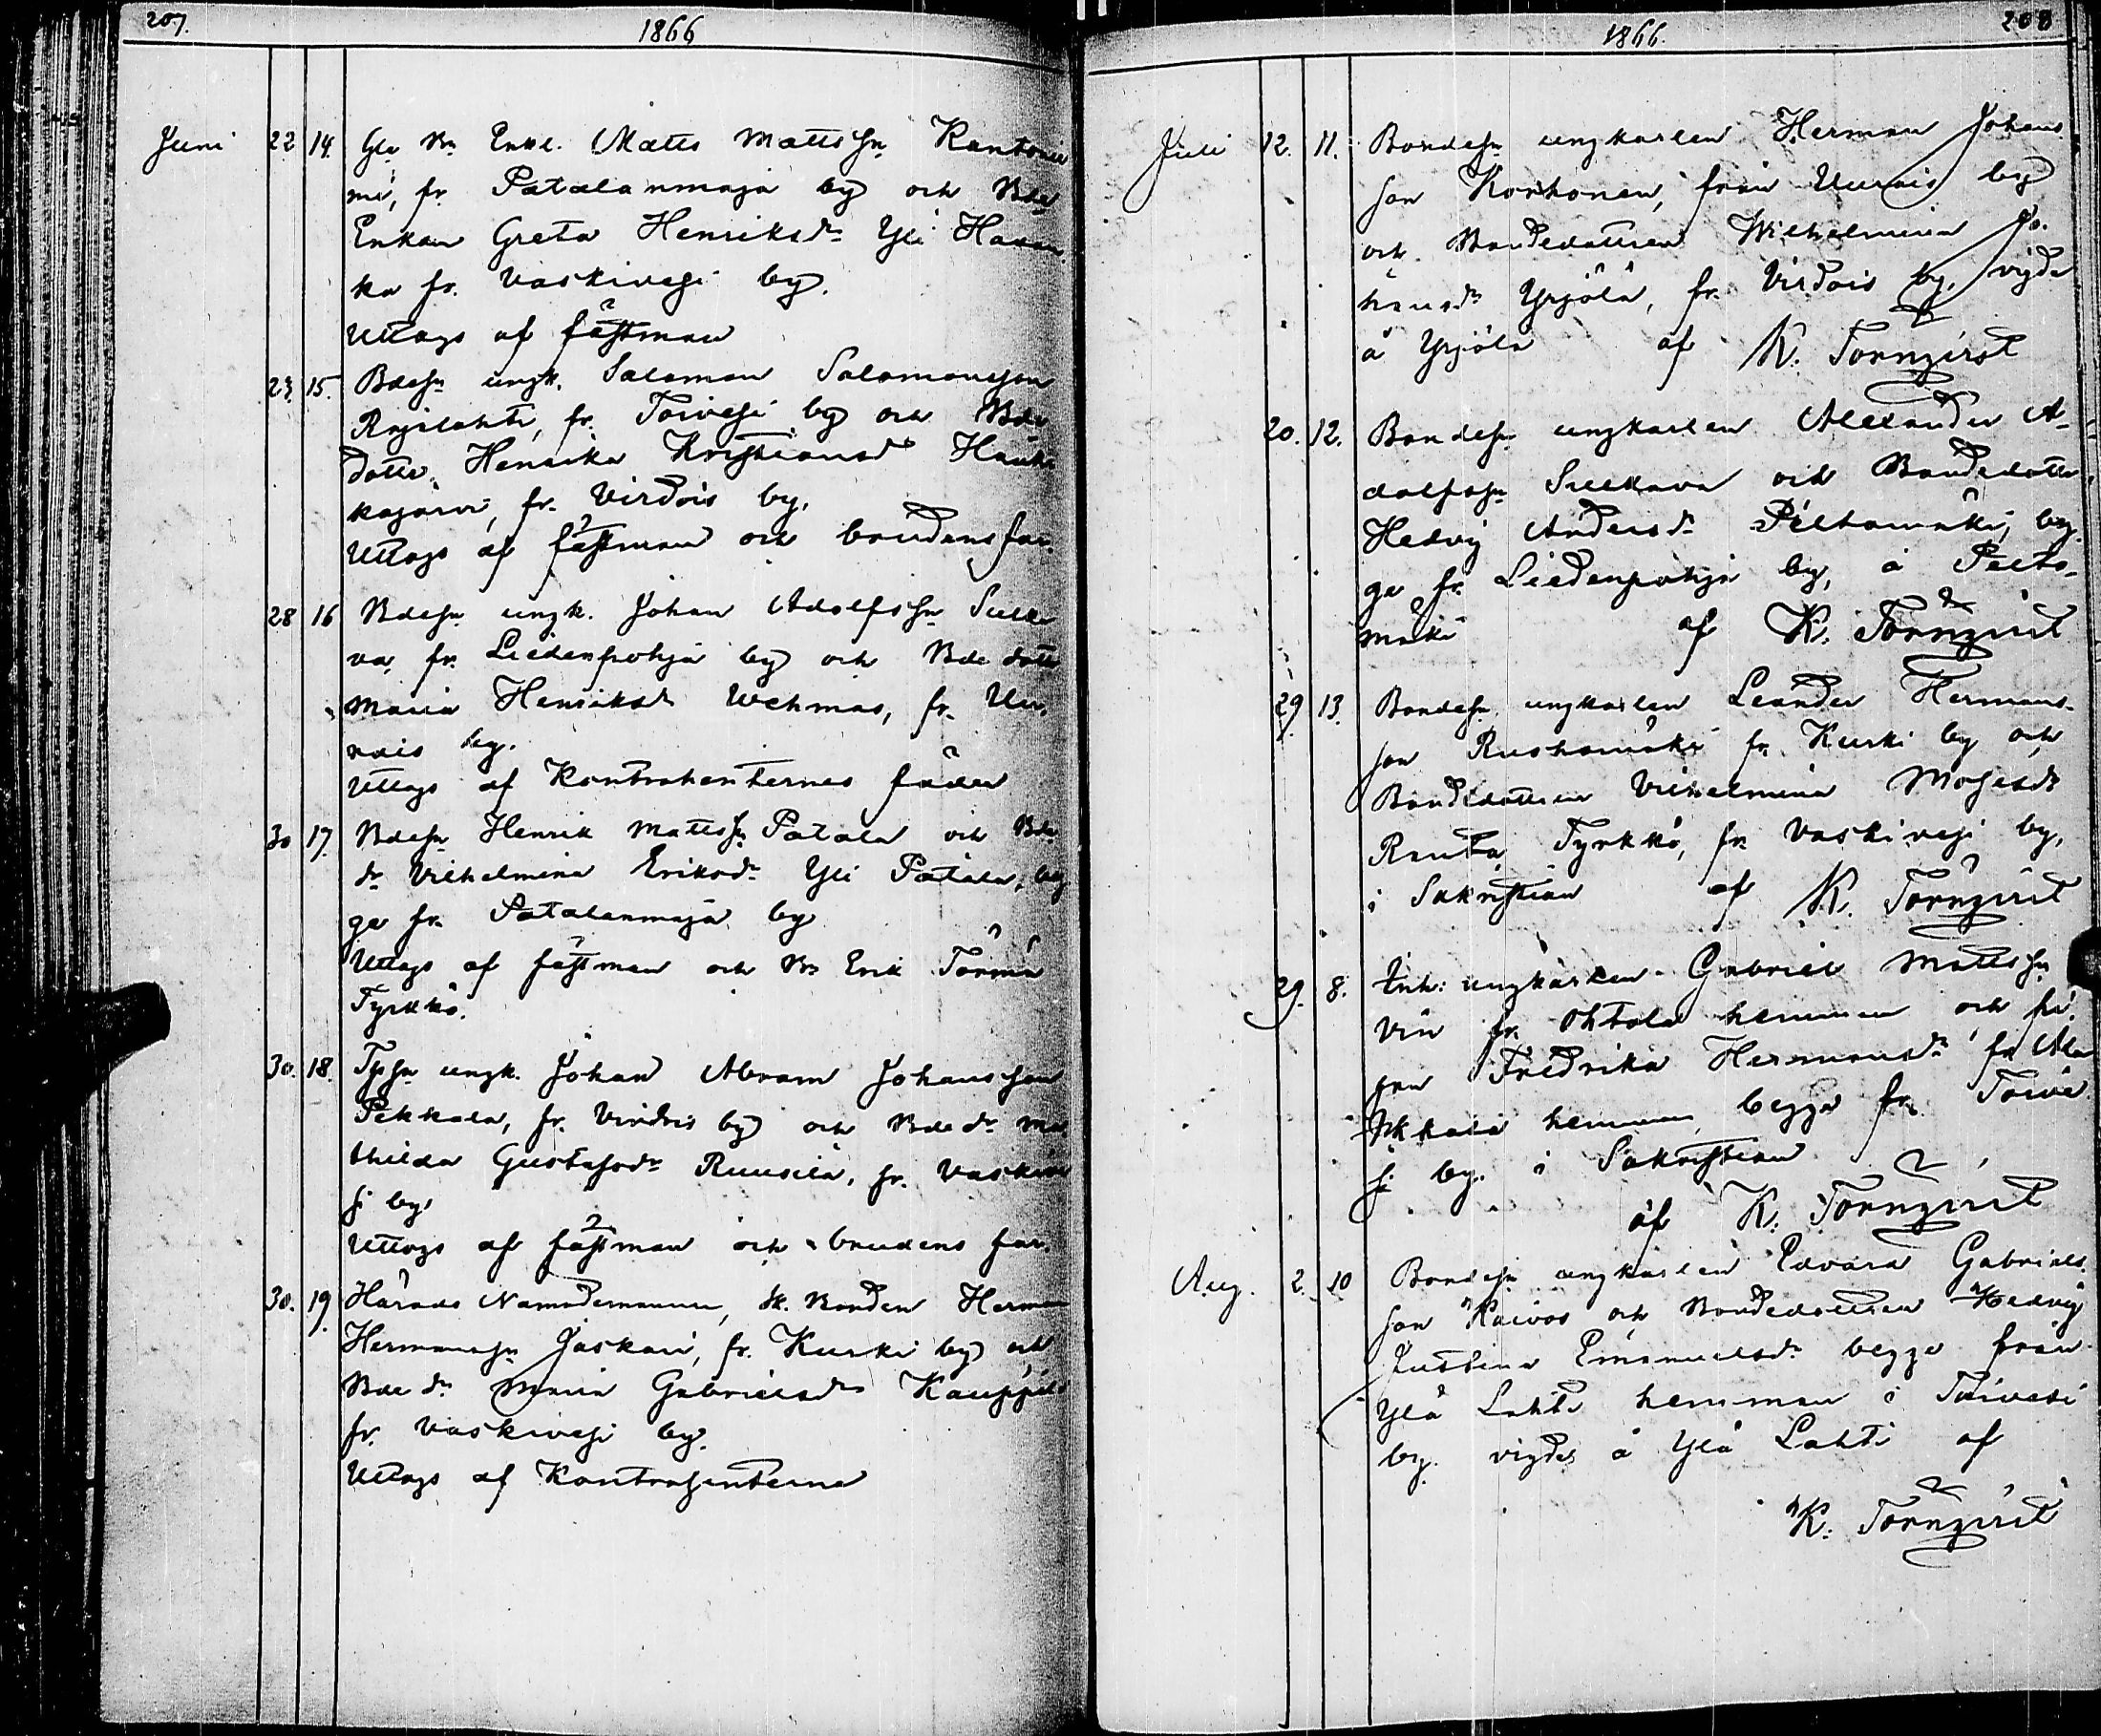 207.
1866
Juni 22 14. Gla Bn Enkl. Matts Mattssn Rantanie
mi, fr. Patalanmaja by och Bde
Enkan Greta Henriksdr Yli Havan
ka fr. Vaskivesi by.
Uttogs af fästman
23 15. Bdesn ungk. Salomon Salomonsson
Rajalahti, fr. Toivesi by och Bde
dottr. Henrika Kristiansdr Hauk
kajärvi, fr. Virdois by.
Uttogs af fästman och brudens far.
28 16 Bdesn ungk. Johan Adolfssn Sulka
va, fr. Liedenpohja by och Bde dottr
Maria Henriksdr Wehmas, fr. Uu-
rais by.
Uttogs af Kontrahenternes fäder
30 17. Bdesn Henrik Mattssn Patala och Bde
dr Vilhelmina Eriksdr Yli Patala, bäg
ge fr. Patalanmaja by
Uttogs af fästman och Bn Erik Törmä
Tyrkkö.
30. 18. Tpsn ungk. Johan Abram Johansson
Pekkala, fr. Virdois by och Bde dr Ma
thilda Gustafsdr Ruusila, fr. Vaskive
si by.
Uttogs af fästman och brudens far.
30. 19. Härads Nämndemannen, sk. Bonden Herman
Hermanssn Jäskari, fr. Kurki by och
Bde dr Maria Gabrielsdr Kauppila
fr. Vaskivesi by.
Uttogs af Kontrahenterna
208
1866.
Juli 12. 11. Bondesn ungkarlen Herman Johans
son Korhonen, från Uurais by
och Bondedottren Wilhelmina Jo-
hansdr Yrjölä, fr. Virdois by, vigde
å Yrjölä af K. Törnqvist
20. 12. Bondesn ungkarlen Alexander A-
dolfssn Sulkava och Bondedottr.
Hedvig Andersdr Peltomäki, bäg
ge fr. Liedenpohja by, å Pelto-
mäki af K. Törnqvist
29 13. Bondesn ungkarlen Leander Hermans-
son Ruohomäki fr. Kurki by och
Bondedottren Vilhelmina Mosesdr
Ranta Tyrkkö, fr. Vaskivesi by,
i Sakristian af K. Törnqvist
29. 8. Inh: ungkarlen Gabriel Mattssn
Vin fr. Ohtola hemman och pi-
gan Fredrika Hermansdr fr. Ala
hemman begge fr. Toive
si by. i Sakristian
af K. Törnqvist
Aug. 2. 10 Bondesn ungkarlen Edvard Gabriels
son Raivos och Bondedottren Hedvig
Justina Emanuelsdr begge från
Ylä Lahti hemman i Toivesi
by. vigdes å Ylä Lahti af
K. Törnqvist